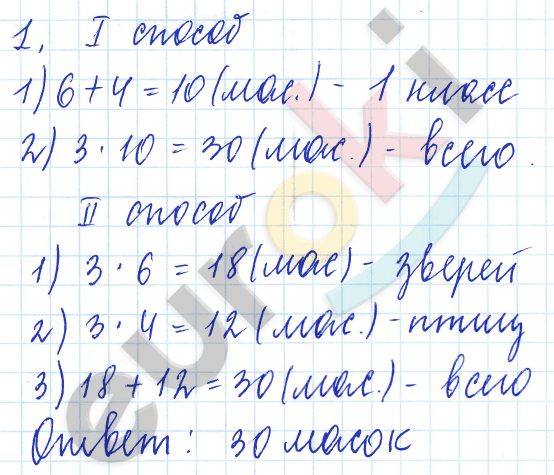 1. I способ
1) 6 + 4 = 10 (мас.) - 1 класс
2) 3 · 10 = 30 (мас.) - всего.
II способ
1) 3 · 6 = 18 (мас) - зверей
2) 3 · 4 = 12 (мас.) - птиц
3) 18 + 12 = 30 (мас.) - всего
Ответ: 30 масок
euroki